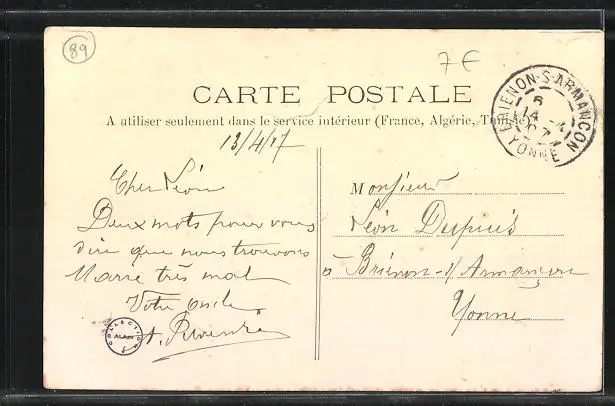 89
7 €
CARTE POSTALE
A utiliser seulement dans le service intérieur (France, Algérie, Tunisie)
BRIENON-S-ARMANÇON
6
14 -4
07
YONNE
13/4/07
Cher Léon
Deux mots pour vous
dire que nous trouvons
Marie très mal
Votre oncle
A.
COLLECTION
ALAIN
Monsieur
Léon Dupuis
à Briénon-s/Armançon
Yonne